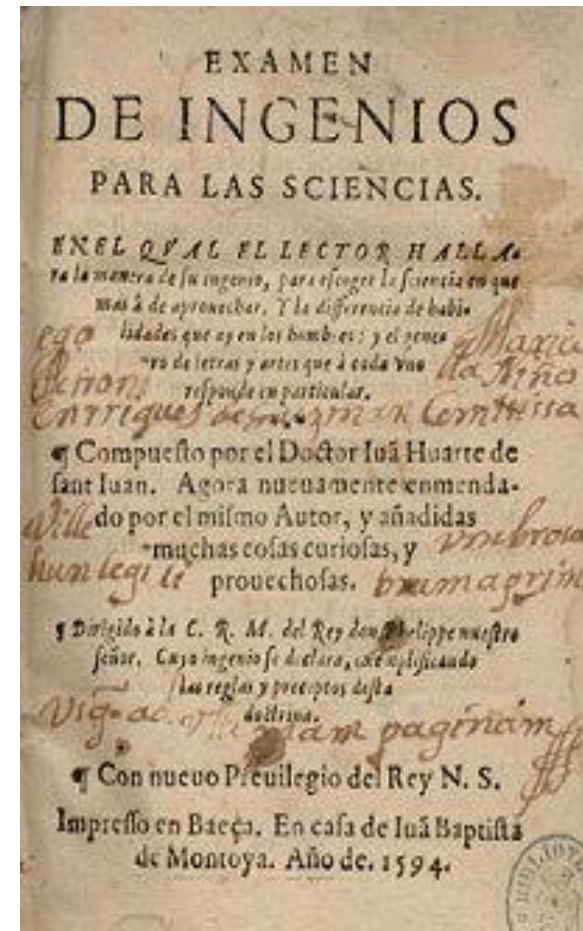 EXAMEN
DE INGENIOS
PARA LAS SCIENCIAS.
EN EL QVAL EL LECTOR HALLA-
ra la manera de su ingenio, para escoger la sciencia en que
mas à de aprouechar. Y la differencia de habi-
lidades que ay en los hombres: y el gene-
ro de letras y artes que à cada vno
responde en particular.
¶ Compuesto por el Doctor Iuã Huarte de
sant Iuan. Agora nueuamente enmenda-
do por el mismo Autor, y añadidas
muchas cosas curiosas, y
prouechosas.
¶ Dirigido à la C. R. M. del Rey don Phelippe nuestro
señor. Cuyo ingenio se declara, exemplificando
las reglas y preceptos desta
doctrina.
paginam
¶ Con nueuo Preuilegio del Rey N. S.
Impresso en Baeça. En casa de Iuã Baptista
de Montoya. Año de. 1594.